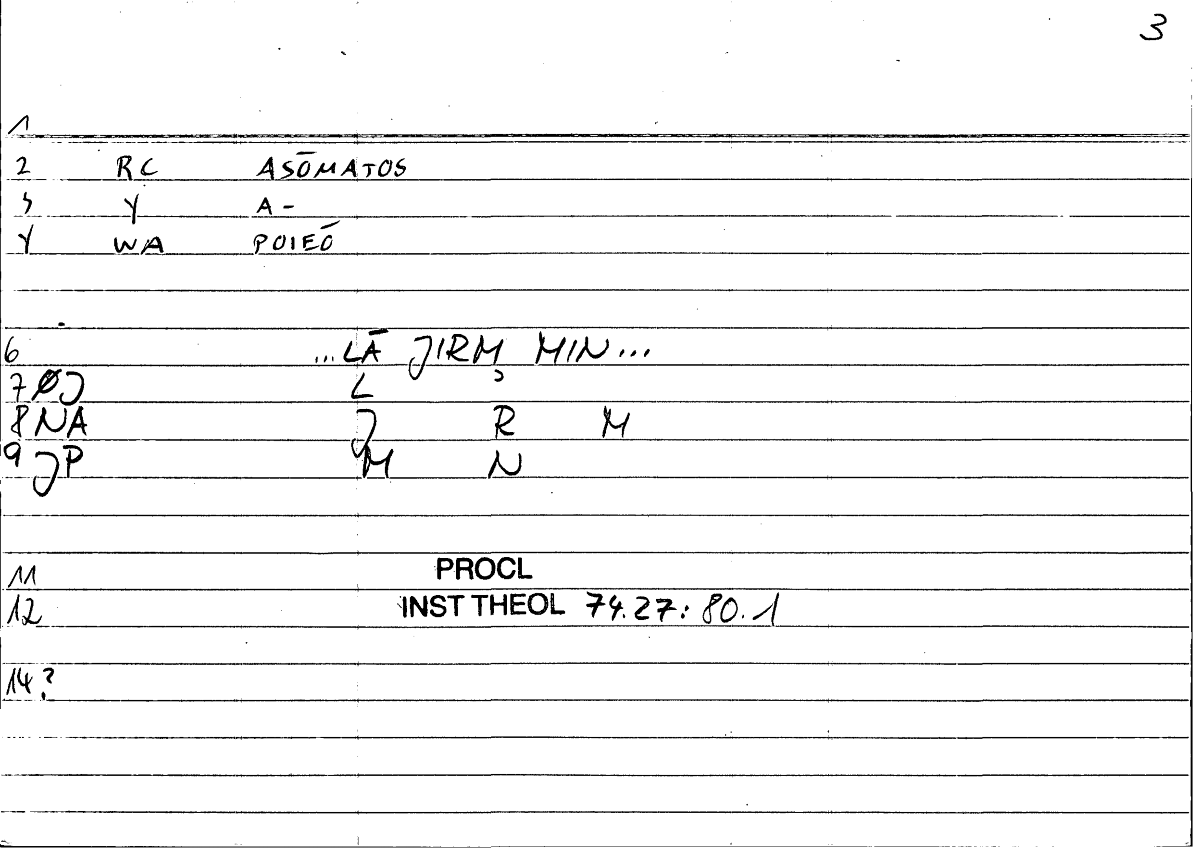 3
1
2 RC ASŌMATOS
3 Y A-
Y WA POIEŌ
6 ...LĀ JIRM MIN...
7 ØJ L
8 NA J R M
9 JP M N
11 PROCL
12 INST THEOL 74.27: 80.1
14?